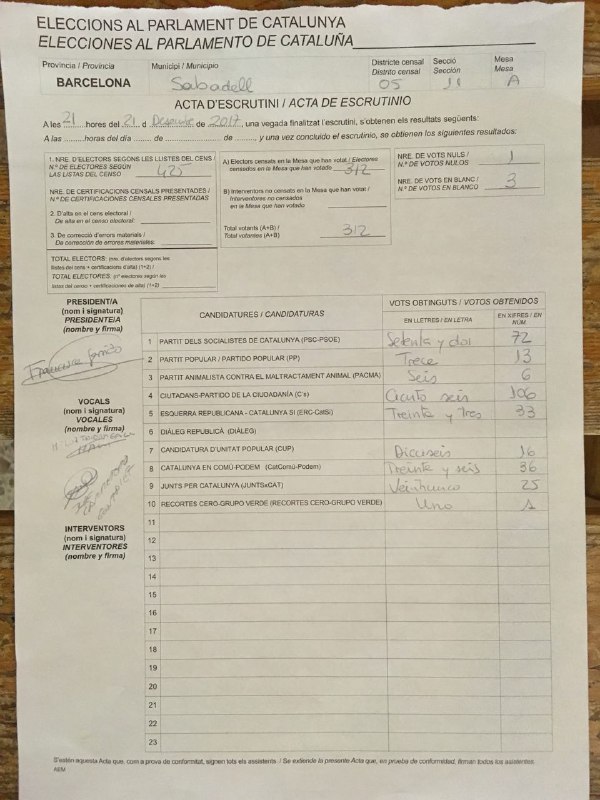 ELECCIONS AL PARLAMENT DE CATALUNYA
ELECCIONES AL PARLAMENTO DE CATALUÑA
Província / Provincia Municipi / Municipio Districte censal Secció Mesa
Distrito censal Sección Mesa
BARCELONA Sabadell 05 11 A
ACTA D'ESCRUTINI / ACTA DE ESCRUTINIO
A les 21 hores del 21 d Desembre de 2017, una vegada finalitzat l'escrutini, s'obtenen els resultats següents:
A las ........ horas del día ........ de ........ de ........ y una vez concluido el escrutinio, se obtienen los siguientes resultados:
1. NRE. D'ELECTORS SEGONS LES LLISTES DEL CENS /
N.º DE ELECTORES SEGÚN
LAS LISTAS DEL CENSO 425
NRE. DE CERTIFICACIONS CENSALS PRESENTADES /
N.º DE CERTIFICACIONES CENSALES PRESENTADAS
2. D'alta en el cens electoral /
De alta en el censo electoral:
3. De correcció d'errors materials /
De corrección de errores materiales:
TOTAL ELECTORS: (nre. d'electors segons les
llistes del cens + certificacions d'alta) (1+2) /
TOTAL ELECTORES: (nº electores según las
listas del censo + certificaciones de alta) (1+2)
A) Electors censats en la Mesa que han votat / Electores
censados en la Mesa que han votado 312
B) Interventors no censats en la Mesa que han votat /
Interventores no censados
en la Mesa que han votado
Total votants (A+B) /
Total votantes (A+B) 312
NRE. DE VOTS NULS /
N.º DE VOTOS NULOS 1
NRE. DE VOTS EN BLANC /
N.º DE VOTOS EN BLANCO 3
PRESIDENT/A
(nom i signatura)
PRESIDENTE/A
(nombre y firma)
VOCALS
(nom i signatura)
VOCALES
(nombre y firma)
INTERVENTORS
(nom i signatura)
INTERVENTORES
(nombre y firma)
CANDIDATURES / CANDIDATURAS VOTS OBTINGUTS / VOTOS OBTENIDOS
EN LLETRES / EN LETRA EN XIFRES / EN NÚM.
1 PARTIT DELS SOCIALISTES DE CATALUNYA (PSC-PSOE) Setenta y dos 72
2 PARTIT POPULAR / PARTIDO POPULAR (PP) Trece 13
3 PARTIT ANIMALISTA CONTRA EL MALTRACTAMENT ANIMAL (PACMA) Seis 6
4 CIUTADANS-PARTIDO DE LA CIUDADANÍA (C's) Ciento seis 106
5 ESQUERRA REPUBLICANA - CATALUNYA SÍ (ERC-CatSí) Treinta y Tres 33
6 DIÀLEG REPUBLICÀ (DIÀLEG)
7 CANDIDATURA D'UNITAT POPULAR (CUP) Dieciseis 16
8 CATALUNYA EN COMÚ-PODEM (CatComú-Podem) Treinta y seis 36
9 JUNTS PER CATALUNYA (JUNTSxCAT) Veinticinco 25
10 RECORTES CERO-GRUPO VERDE (RECORTES CERO-GRUPO VERDE) Uno 1
11
12
13
14
15
16
17
18
19
20
21
22
23
S'estén aquesta Acta que, com a prova de conformitat, signen tots els assistents. / Se extiende la presente Acta que, en prueba de conformidad, firman todos los asistentes.